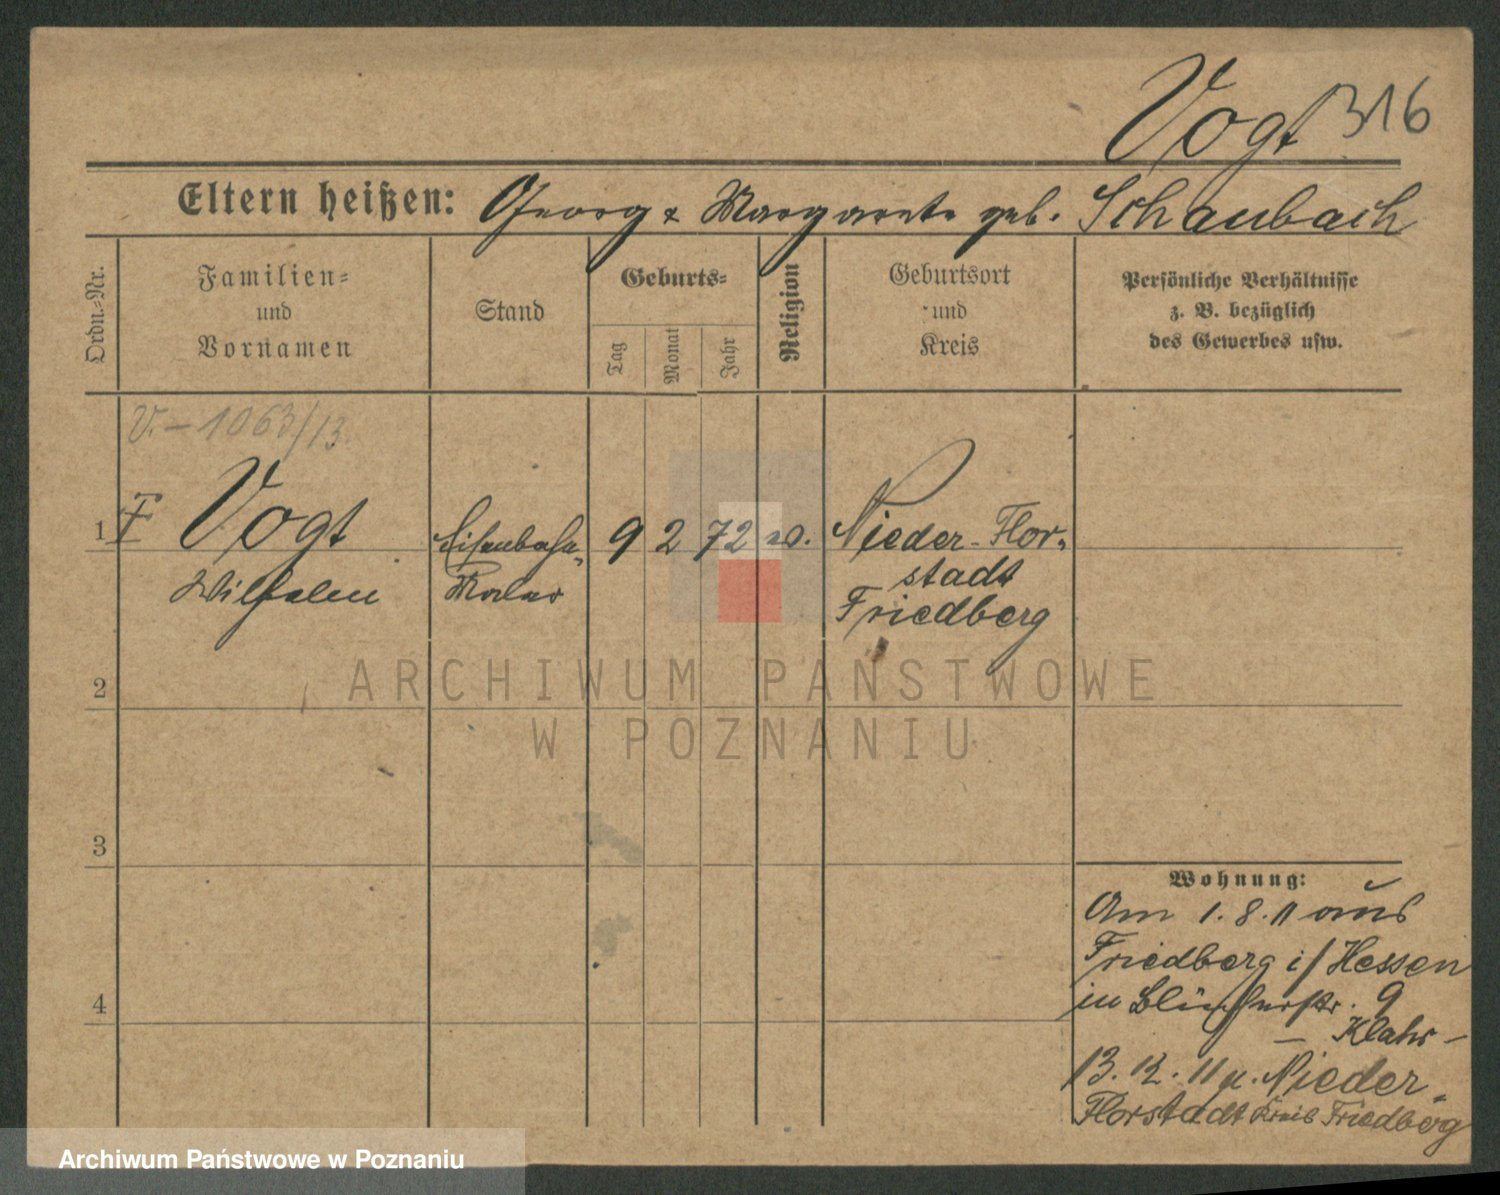 Vogt 316
Eltern heißen: Georg & Margarete geb. Schaubach
Ordn.-Nr.
Familien- und Vornamen
Stand
Geburts-
Tag
Monat
Jahr
Religion
Geburtsort und Kreis
Persönliche Verhältnisse
z. B. bezüglich
des Gewerbes usw.
V. - 1063/13
1 Vogt Eisenbahn- 9 2 72 ev. Nieder-Flor-
stadt
Wilhelm Maler Friedberg
2
3
4
Wohnung:
Am 1.8.11 aus
Friedberg i/Hessen
in Blücherstr. 9
– Klahr –
13.12.11 n. Nieder-
Florstadt Kreis Friedberg
ARCHIWUM PAŃSTWOWE
W POZNANIU
Archiwum Państwowe w Poznaniu